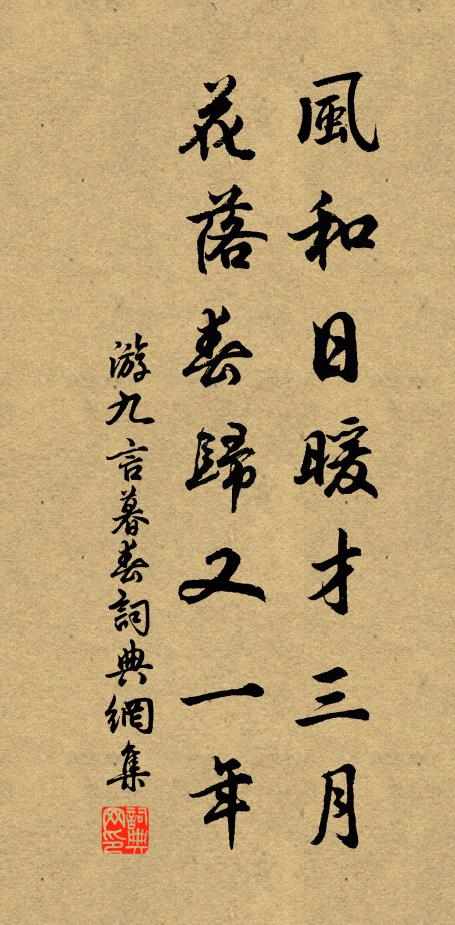 風和日暖才三月
花落春歸又一年
游九言暮春詞典網集
詞典網印